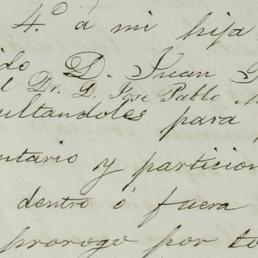 4.º á mi hija
ido D. Juan
el Dr. D. Jose Pablo
ultandoles para
ntario y particion
dentro ó fuera
prorogo por to